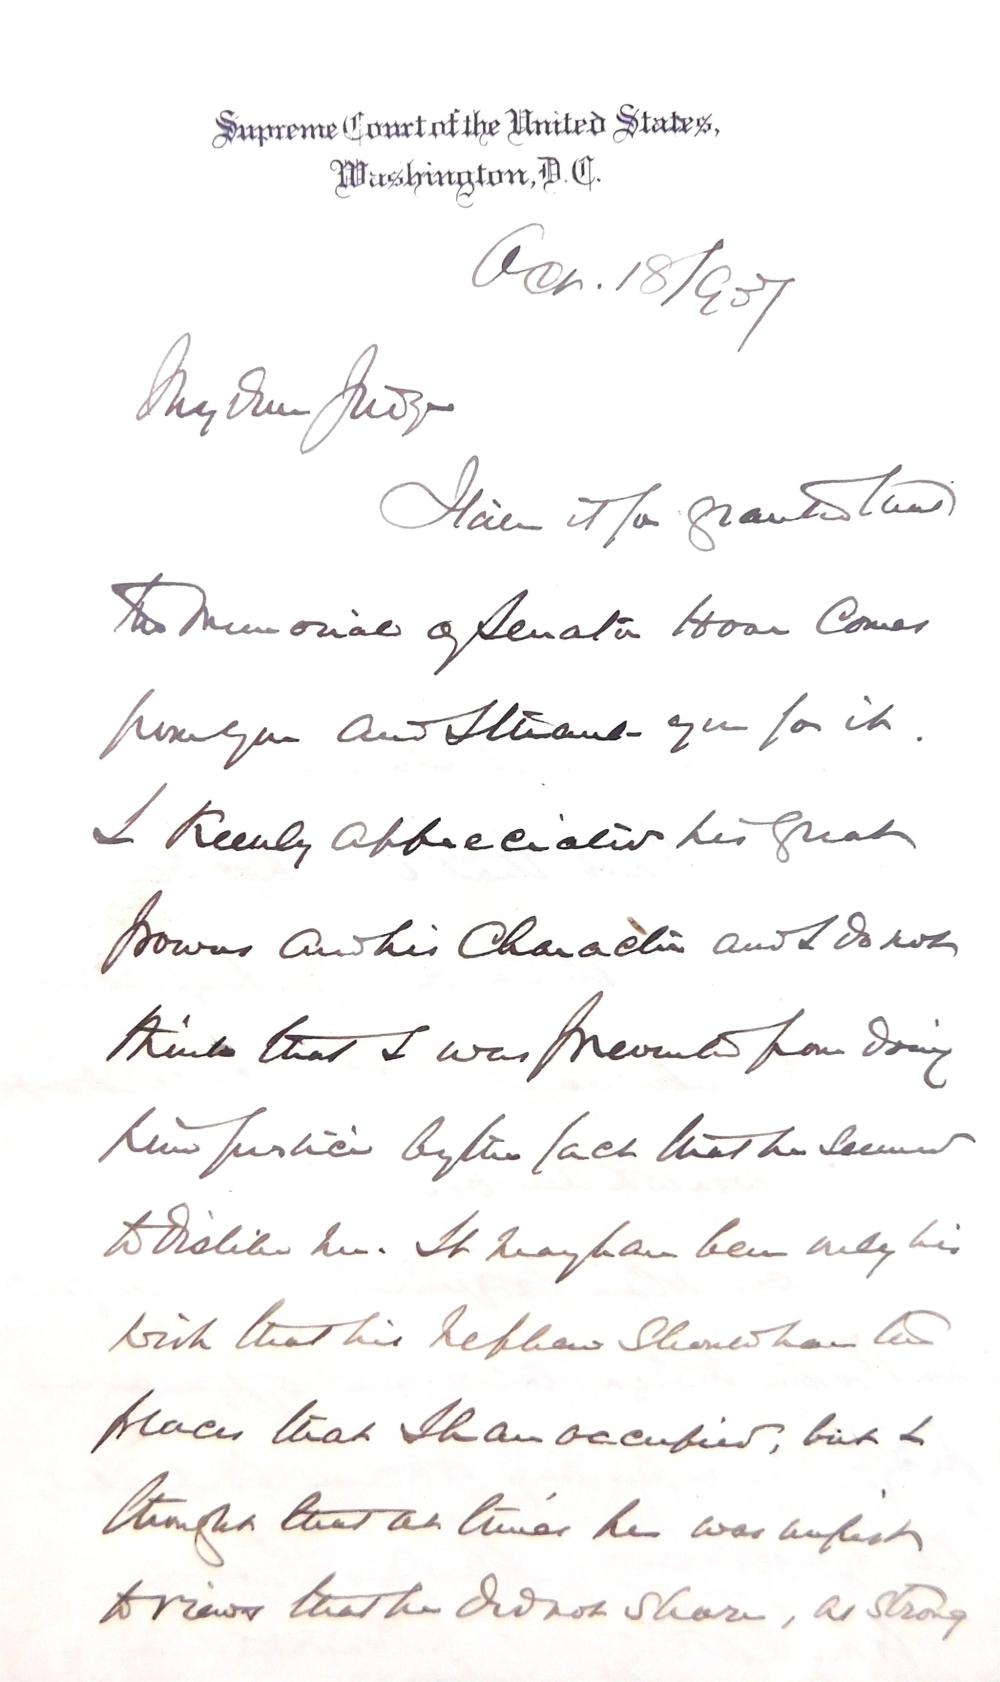 Supreme Court of the United States,
Washington, D.C.
Oct. 18/
My dear Judge
I take it for granted that
the Memorial of Senator Hoar comes
from you and I thank you for it.
I keenly appreciated his great
powers and his character and I do not
think that I was prevented from doing
him justice by the fact that he seemed
to dislike me. It may have been only his
wish that his nephew should have the
places that I have occupied, but I
thought that at times he was unjust
to views that he did not share, as strong